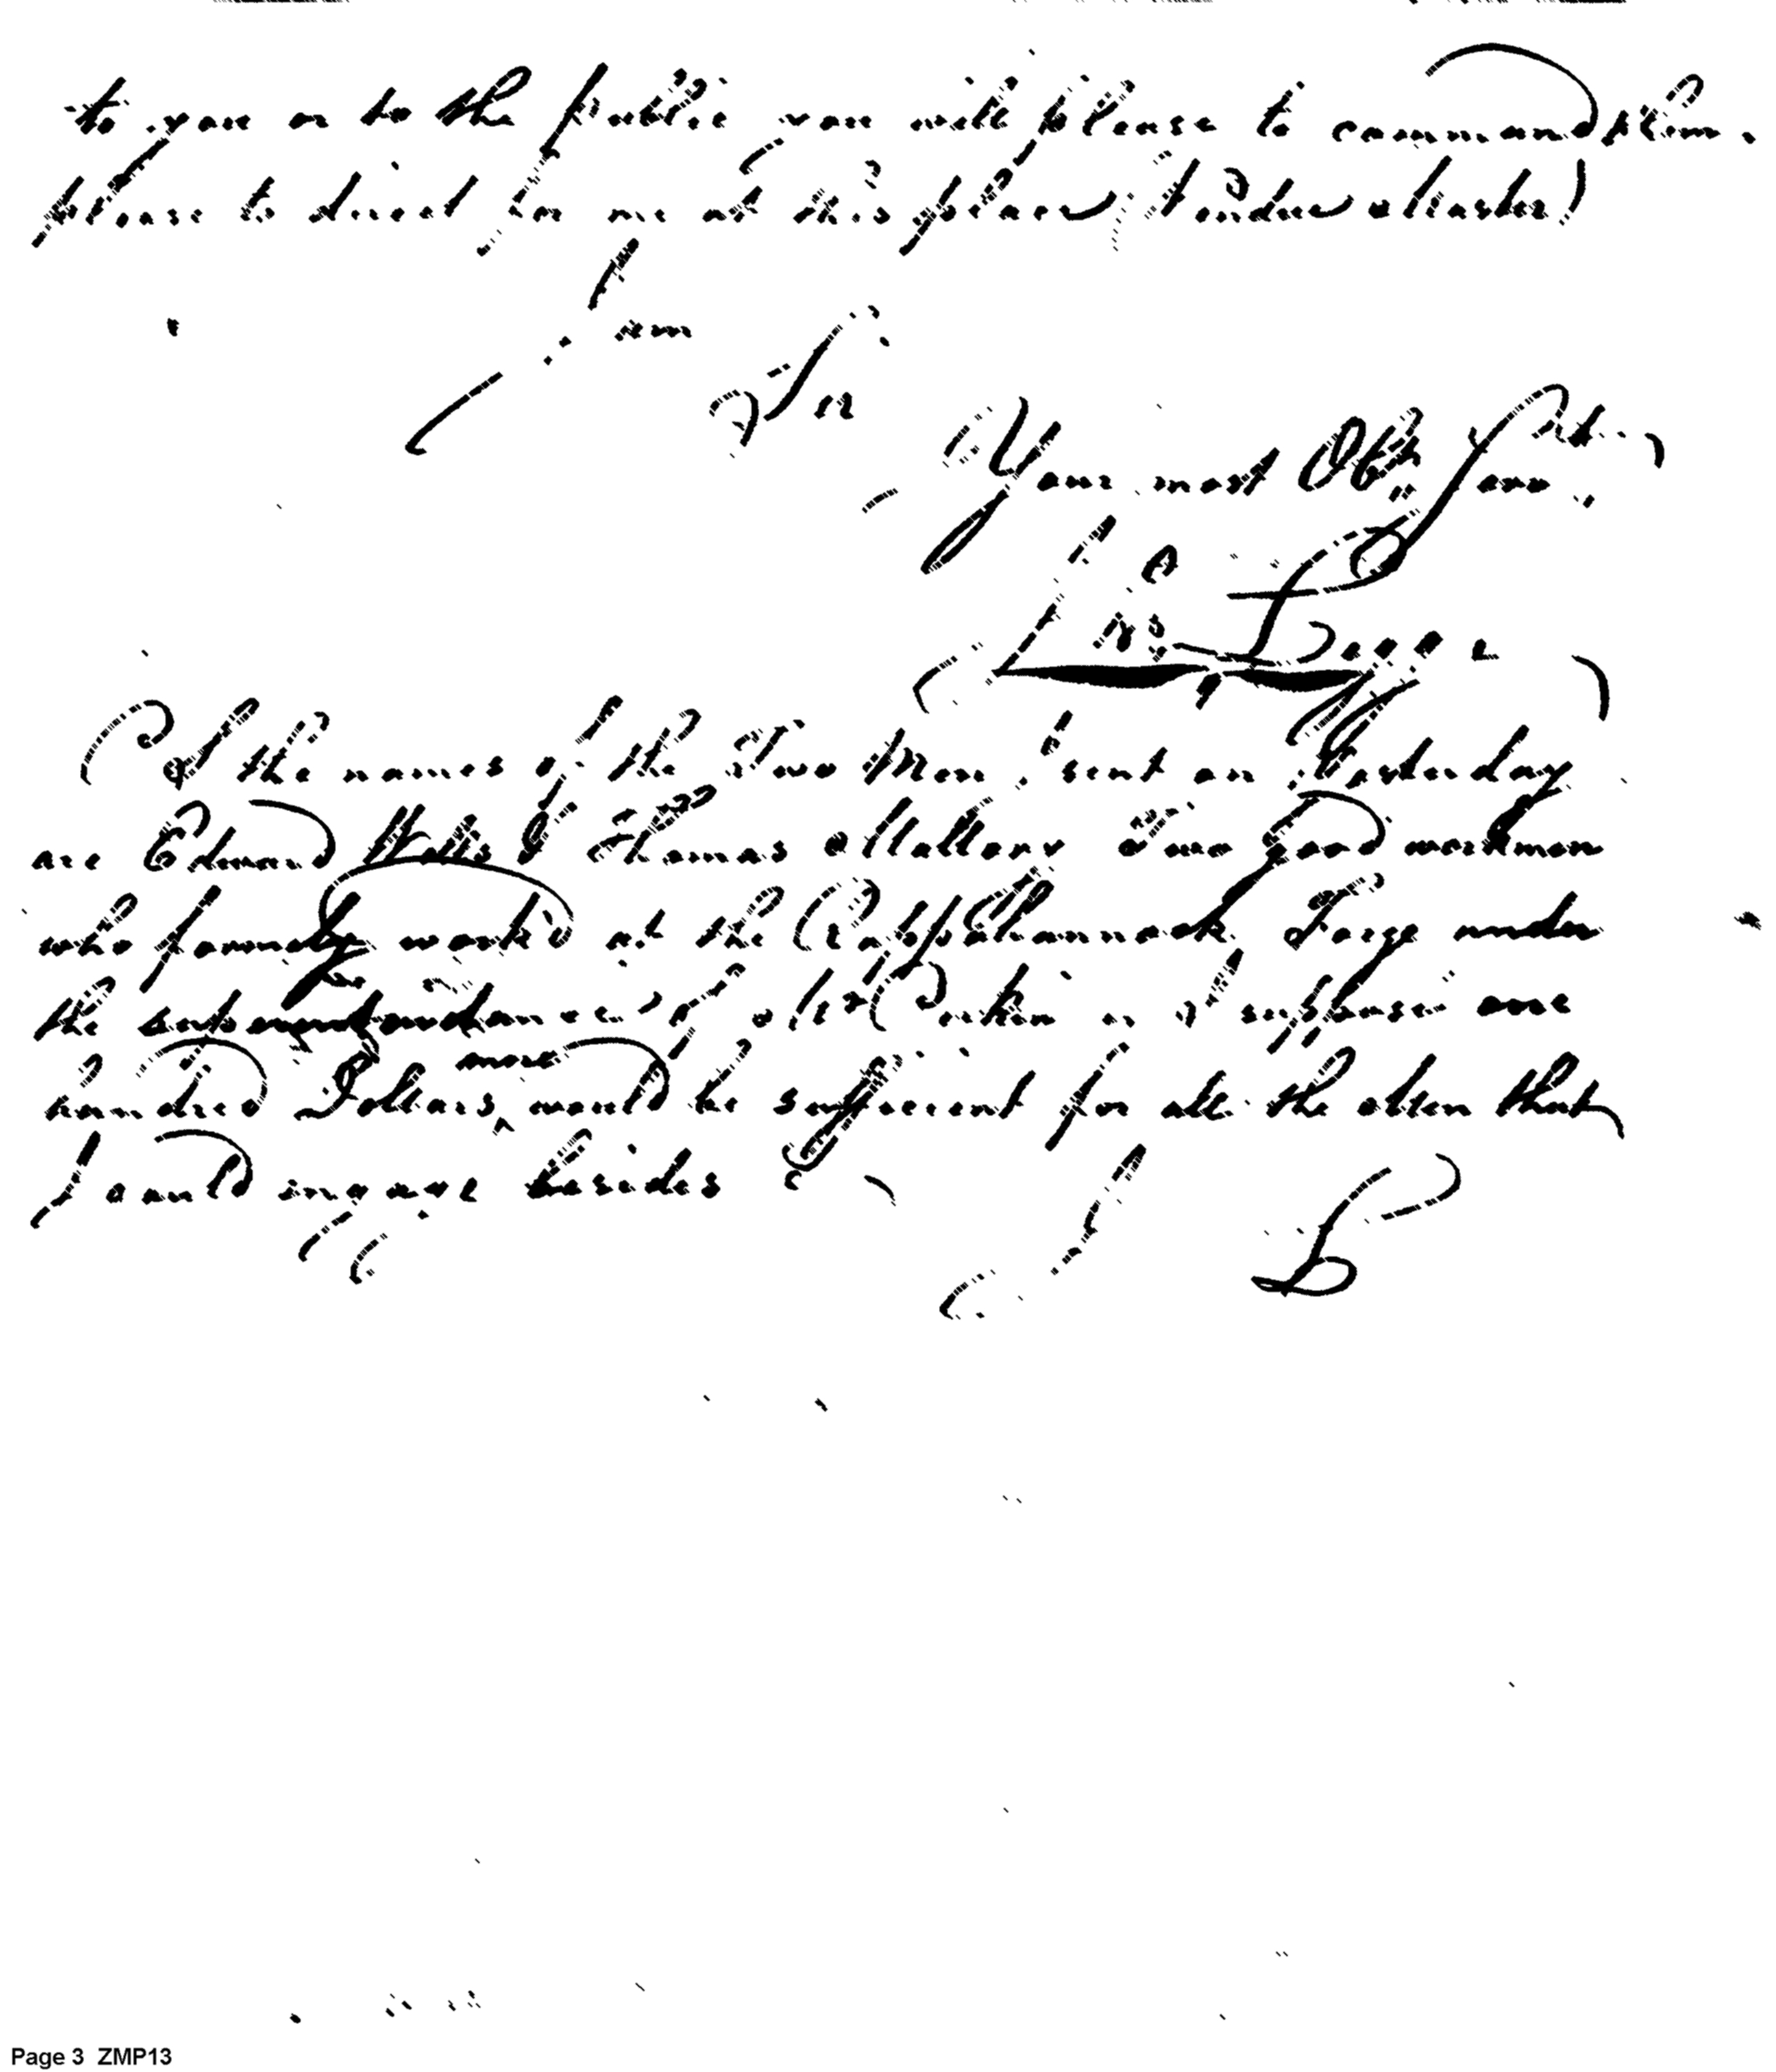 to you or to the public you will please to command them.
please to direct for me at this place (Vendue Master)
I am
Sir
Your most Obt Servt
P.S. the names of the Two Men I sent on Yesterday
are Edmund Wells & Thomas Mallory Two good workmen
who formerly work'd at the Rappahannock Forge under
the of Mr I suppose one
hundred Dollars more would be sufficient for all the other that
I could ingage besides